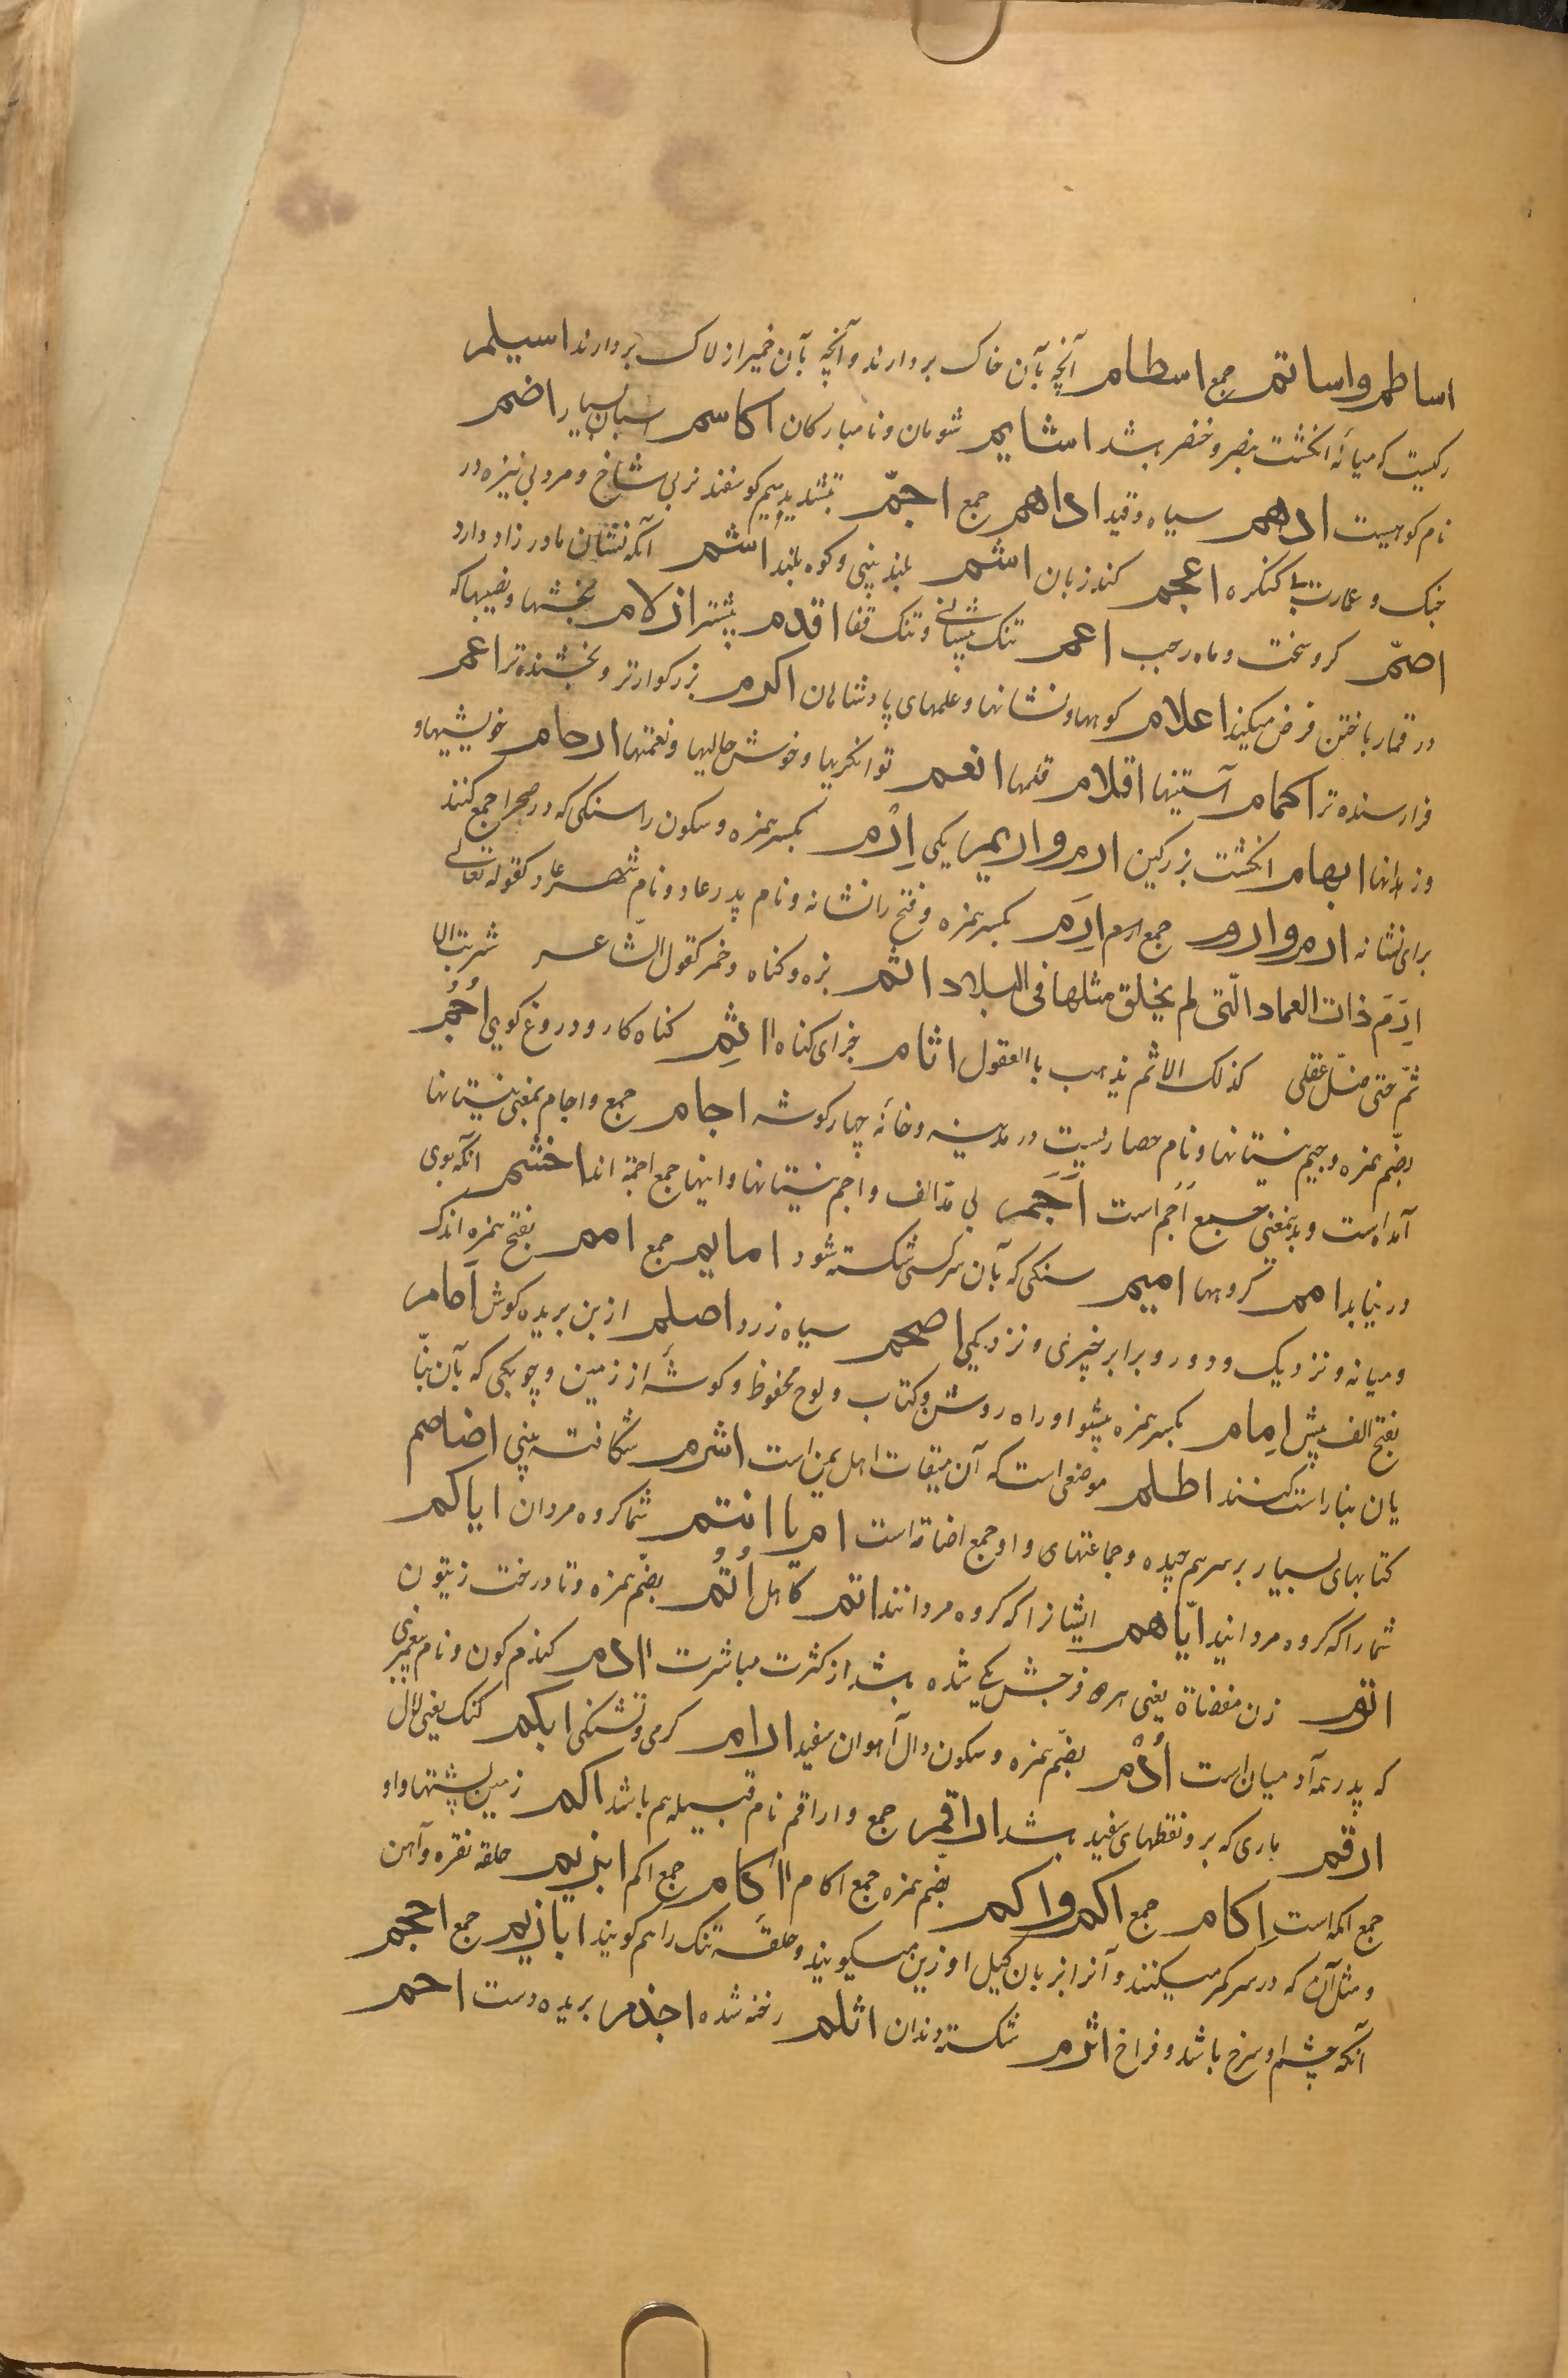 اساطم واساتم جمع اسطام آنچه بآن خاک بردارند و آنچه بآن خمیر از لاک بردارند اسیلم
رکیست که میانهٔ انکشت بنصر و خنصر باشد اشایم شومان و نامبارکان اکاسم اسبان بسیار اضم
نام کوهیست ادهم سیاه و قید اداهم جمع اجمّ بتشدید میم کوسفند نر بی شاخ و مرد بی نیزه در
جنک و عمارت بی کنکره اعجم کند زبان اشم بلند بینی و کوه بلند اشیم آنکه نشان مادرزاد دارد
اصمّ کر و سخت و ماه رجب اعم تنک پیشانی و تنک قفا اقدم پیشتر ازلام بخشها و نصیبها که
در قمار باختن فرض میکنند اعلام کوهها و نشانها و علمهای پادشاهان اکرم بزرکوارتر و بخشنده تر اعم
فرارسنده تر اکمام آستینها اقلام قلمها انعم توانکریها و خوش حالیها و نعمتها ارحام خویشیها و
و زهدانها ابهام انکشت بزرکین ارم واریم یکی اِرْم بکسر همزه و سکون را سنکی که در صحرا جمع کنند
برای نشانه ارم وارور جمع ارم اِرَم بکسر همزه و فتح را نشانه و نام پدر عاد و نام شهر عاد کقوله تعالی
اِرَمَ ذات العماد الّتی لم یخلق مثلها فی البلاد اثم بزه و کناه و خمر کقول الشّاعر شربت الا
ثم حتی ضلّ عقلی کذلک الاثم یذهب بالعقول اثام جزای کناه ااثِم کناه کار و دروغ کوی اُجُم
بضّم همزه و جیم نیستانها و نام حصاریست در مدینه و خانهٔ چهارکوشه اجام جمع و اجام بمعنی نیستانها
آمده است و بدیمعنی جمع اَجَم است اَجَم بی مدّ الف و اجم نیستانها و اینها جمع اجمة اند اخشم آنکه بوی
در نیابد امم کروهها امیم سنکی که بآن سر کسی شکسته شود امایم جمع امم بفتح همزه اندک
و میانه و نزدیک و دور و برابر چیزی و نزدیکی اصحم سیاه زرد اصلم از بن بریده کوش اَمام
بفتح الف پیش اِمام بکسر همزه پیشوا و راه روشن و کتاب و لوح محفوظ و کوشهٔ از زمین و چوبکی که بآن بنّا
یان بنا راست کنند اطلم موضعی است که آن میقات اهل یمن است اشرم شکافته بینی اضامم
کتابهای بسیار بر سر هم چیده و جماعتهای و او جمع اضامة است ام یا انتم شما کروه مردان ایاکم
شما را که کروه مردانید ایّاهم ایشانرا که کروه مردانند اتم کاهل اُتُم بضّم همزه و تا درخت زیتون
اتوم زن مفضاة یعنی هر دو فرجش یکی شده باشد از کثرت مباشرت اادم کندم کون و نام پیغمبری
که پدر همه آدمیان است اُدْم بضّم همزه و سکون دال آهوان سفید ارام کرمی و تشنکی ابکم کنک یعنی لال
ارقم ماری که بر و نقطهای سفید باشد اراقم جمع و اراقم نام قبیله هم باشد اکم زمین پشتها و او
جمع اکمه است اِکام جمع اکم و اکم بضم همزه جمع اکام ااکام جمع اکم ابزیم حلقه نقره و آهن
و مثل آن که در سر کمر میکنند و آنرا بزبان کیل اوزین میکویند و حلقهٔ تنک را هم کویند ابازیم جمع احجم
آنکه چشم او سرخ باشد و فراخ اثرم شکسته دندان اثلم رخنه شده اجذم بریده دست احم